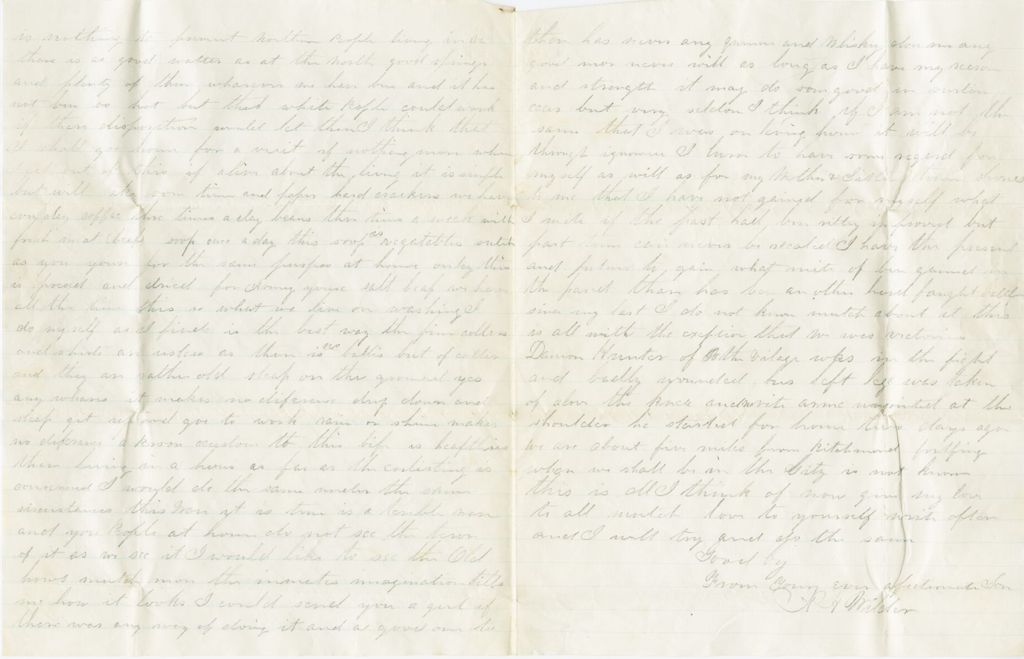 is nothing to prevent Northern People living in it
there is as good watter as at the North good springs
and plenty of them whareever we have bin and it has
not bin so hot but that white People could work
if there disposition would let them I think that
I shall go home for a visit if nothing more when
I get out of this if alive about the living it is simple
but will
coffee three times a day beans three times a week with
fresh meat soop once a day this soop vegetables
as you youse for the same purpos at home onley this
is pressed and dried for Army youse salt beaf we have
all the time this is what we live on washing I
do myself as I find it is the best way the fine collers
and shirts are useless as there is
and they are rather old sleap on the ground yes
any whare it makes no diference drop down and
sleap get up and go to work rain or shine makes
no diference a person accustom to this life is healthier
then living in a house as far as the
concerned I would do the same under the same
circumstances this War it is true is a terible
and you People at home do not see the
of it as we see it I would like to see the Old
hows mutch more the
me how it looks I could send you a
there was any way of doing it and a good one to
thare has never any gammon and Whiskey done me any
good nor never will as long as I have my reason
and strength it may do some good in certain
cases but very seldom I think if I am not the
same that I was on leving home it will be
through ignorance I learn to have some regard for
myself as well as for my Mother & Sister
to me that I have not gained for myself what
I mite if the past had bin ritley improved but
past time can never be recaled I have the present
and future to gain what mite of bin gained in
the parst thare has ben an other hard faught battle
since my last I do not know mutch about it this
is all with the exception that we was victorious
Hunter of vilage was in the fight
and badly wounded his left leg was taken
of above the knee and rite arme wounded at the
shoulder he started for home two days ago
we are about five miles from Ritchmond fortifying
when we shall be in the City is not known
this is all I think of now give my love
to all mutch love to yourself write often
and I will try and do the same
Good by
From Your ever affectionate Son
Wilder